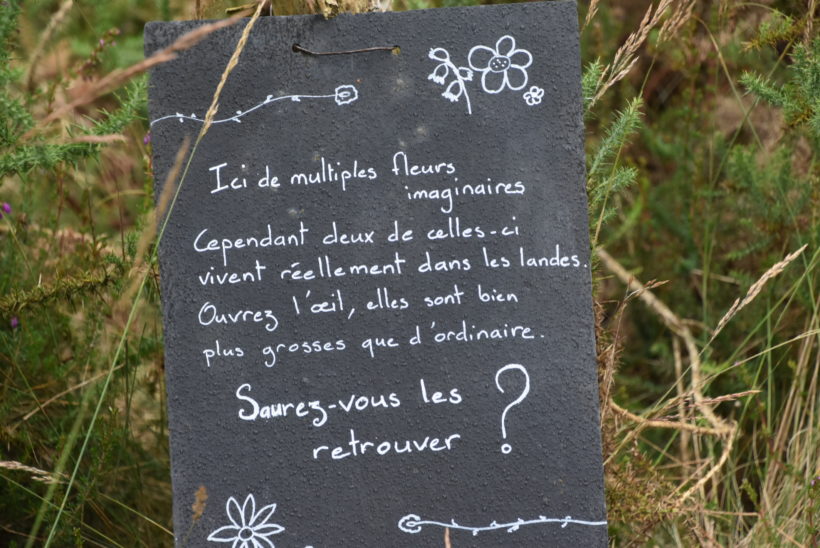 Ici de multiples fleurs
imaginaires
Cependant deux de celles-ci
vivent réellement dans les landes.
Ouvrez l'œil, elles sont bien
plus grosses que d'ordinaire.
Saurez-vous les
retrouver ?